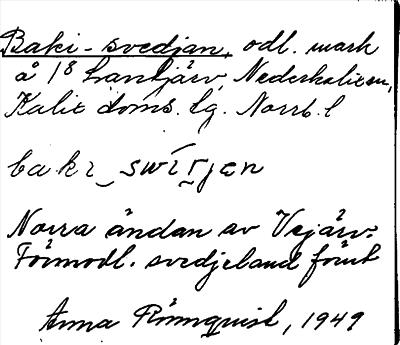 Baki-svedjan, odl. mark
å 1⁸ Lantjärv, Nederkalixsn,
Kalix doms. lg. Norrb. l
Norra ändan av Vejärv.
Förmodl. svedjeland förut
Anna Rönnquist, 1949